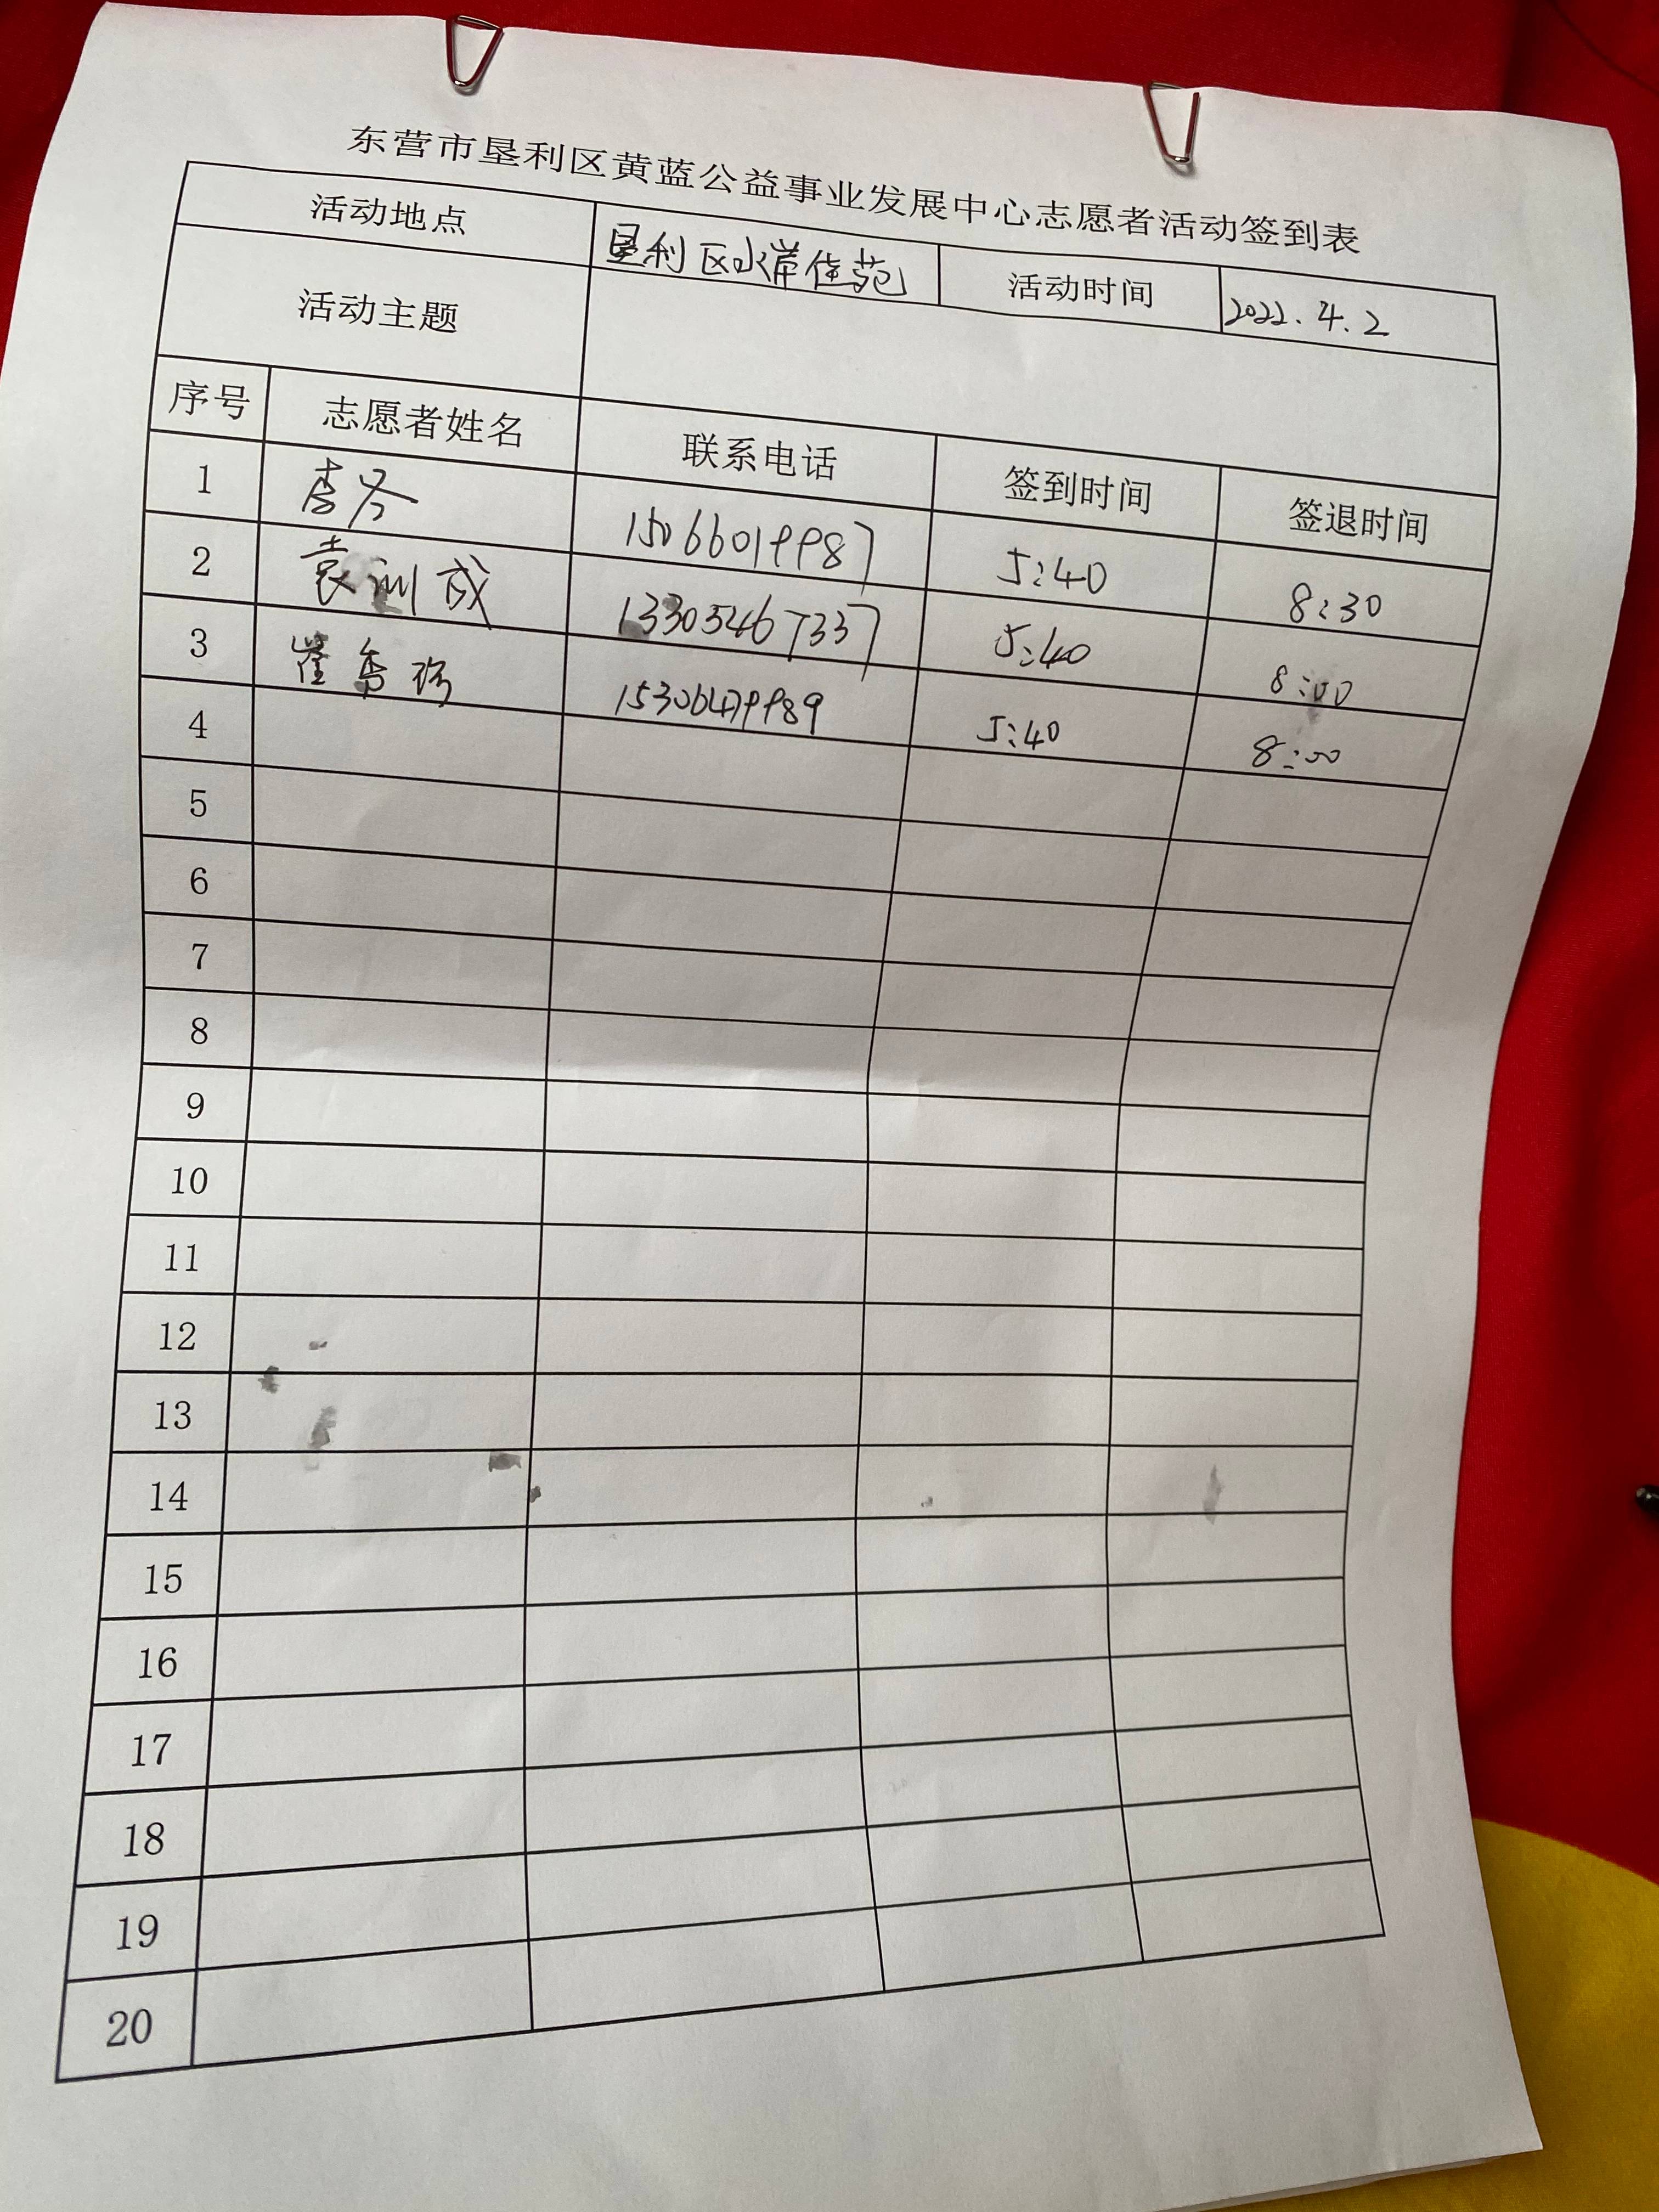 东营市垦利区黄蓝公益事业发展中心志愿者活动签到表
活动地点 垦利区水岸佳苑 活动时间 2022.4.2
活动主题
序号 志愿者姓名 联系电话 签到时间 签退时间
1 李冬 15066019987 5:40 8:30
2 袁训成 13305467337 5:40 8:00
3 崔香 15306479989 5:40 8:00
4
5
6
7
8
9
10
11
12
13
14
15
16
17
18
19
20